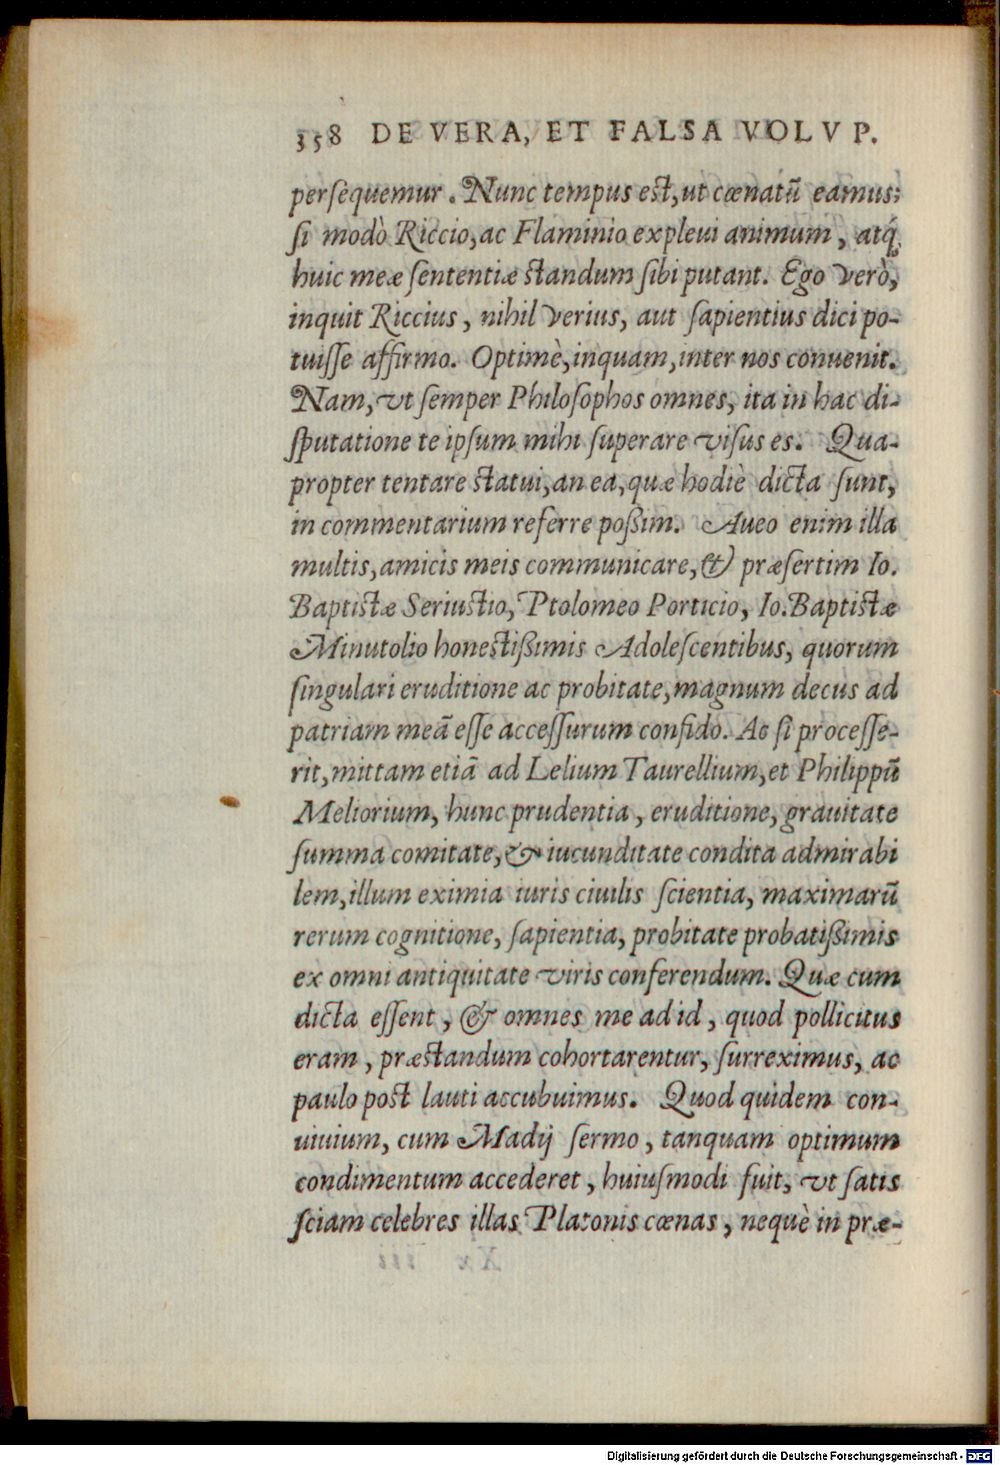 358 DE VERA, ET FALSA VOLVP.
persequemur. Nunc tempus est, ut cœnatū eamus:
si modò Riccio, ac Flaminio expleui animum, atq́;
huic meæ sententiæ standum sibi putant. Ego verò,
inquit Riccius, nihil verius, aut sapientius dici po-
tuisse affirmo. Optimè, inquam, inter nos conuenit.
Nam, vt semper Philosophos omnes, ita in hac di-
sputatione te ipsum mihi superare visus es. Qua-
propter tentare statui, an ea, quæ hodiè dicta sunt,
in commentarium referre poßim. Aueo enim illa
multis, amicis meis communicare, & præsertim Io.
Baptistæ Seriustio, Ptolomeo Porticio, Io. Baptistæ
Minutolio honestißimis Adolescentibus, quorum
singulari eruditione ac probitate, magnum decus ad
patriam meā esse accessurum confido. Ac si processe-
rit, mittam etiā ad Lelium Taurellium, et Philippū
Meliorium, hunc prudentia, eruditione, grauitate
summa comitate, & iucunditate condita admirabi
lem, illum eximia iuris ciuilis scientia, maximarū
rerum cognitione, sapientia, probitate probatißimis
ex omni antiquitate viris conferendum. Quæ cum
dicta essent, & omnes me ad id, quod pollicitus
eram, præstandum cohortarentur, surreximus, ac
paulo post lauti accubuimus. Quod quidem con-
uiuium, cum Madij sermo, tanquam optimum
condimentum accederet, huiusmodi fuit, vt satis
sciam celebres illas Platonis cœnas, nequè in præ-
Digitalisierung gefördert durch die Deutsche Forschungsgemeinschaft - DFG